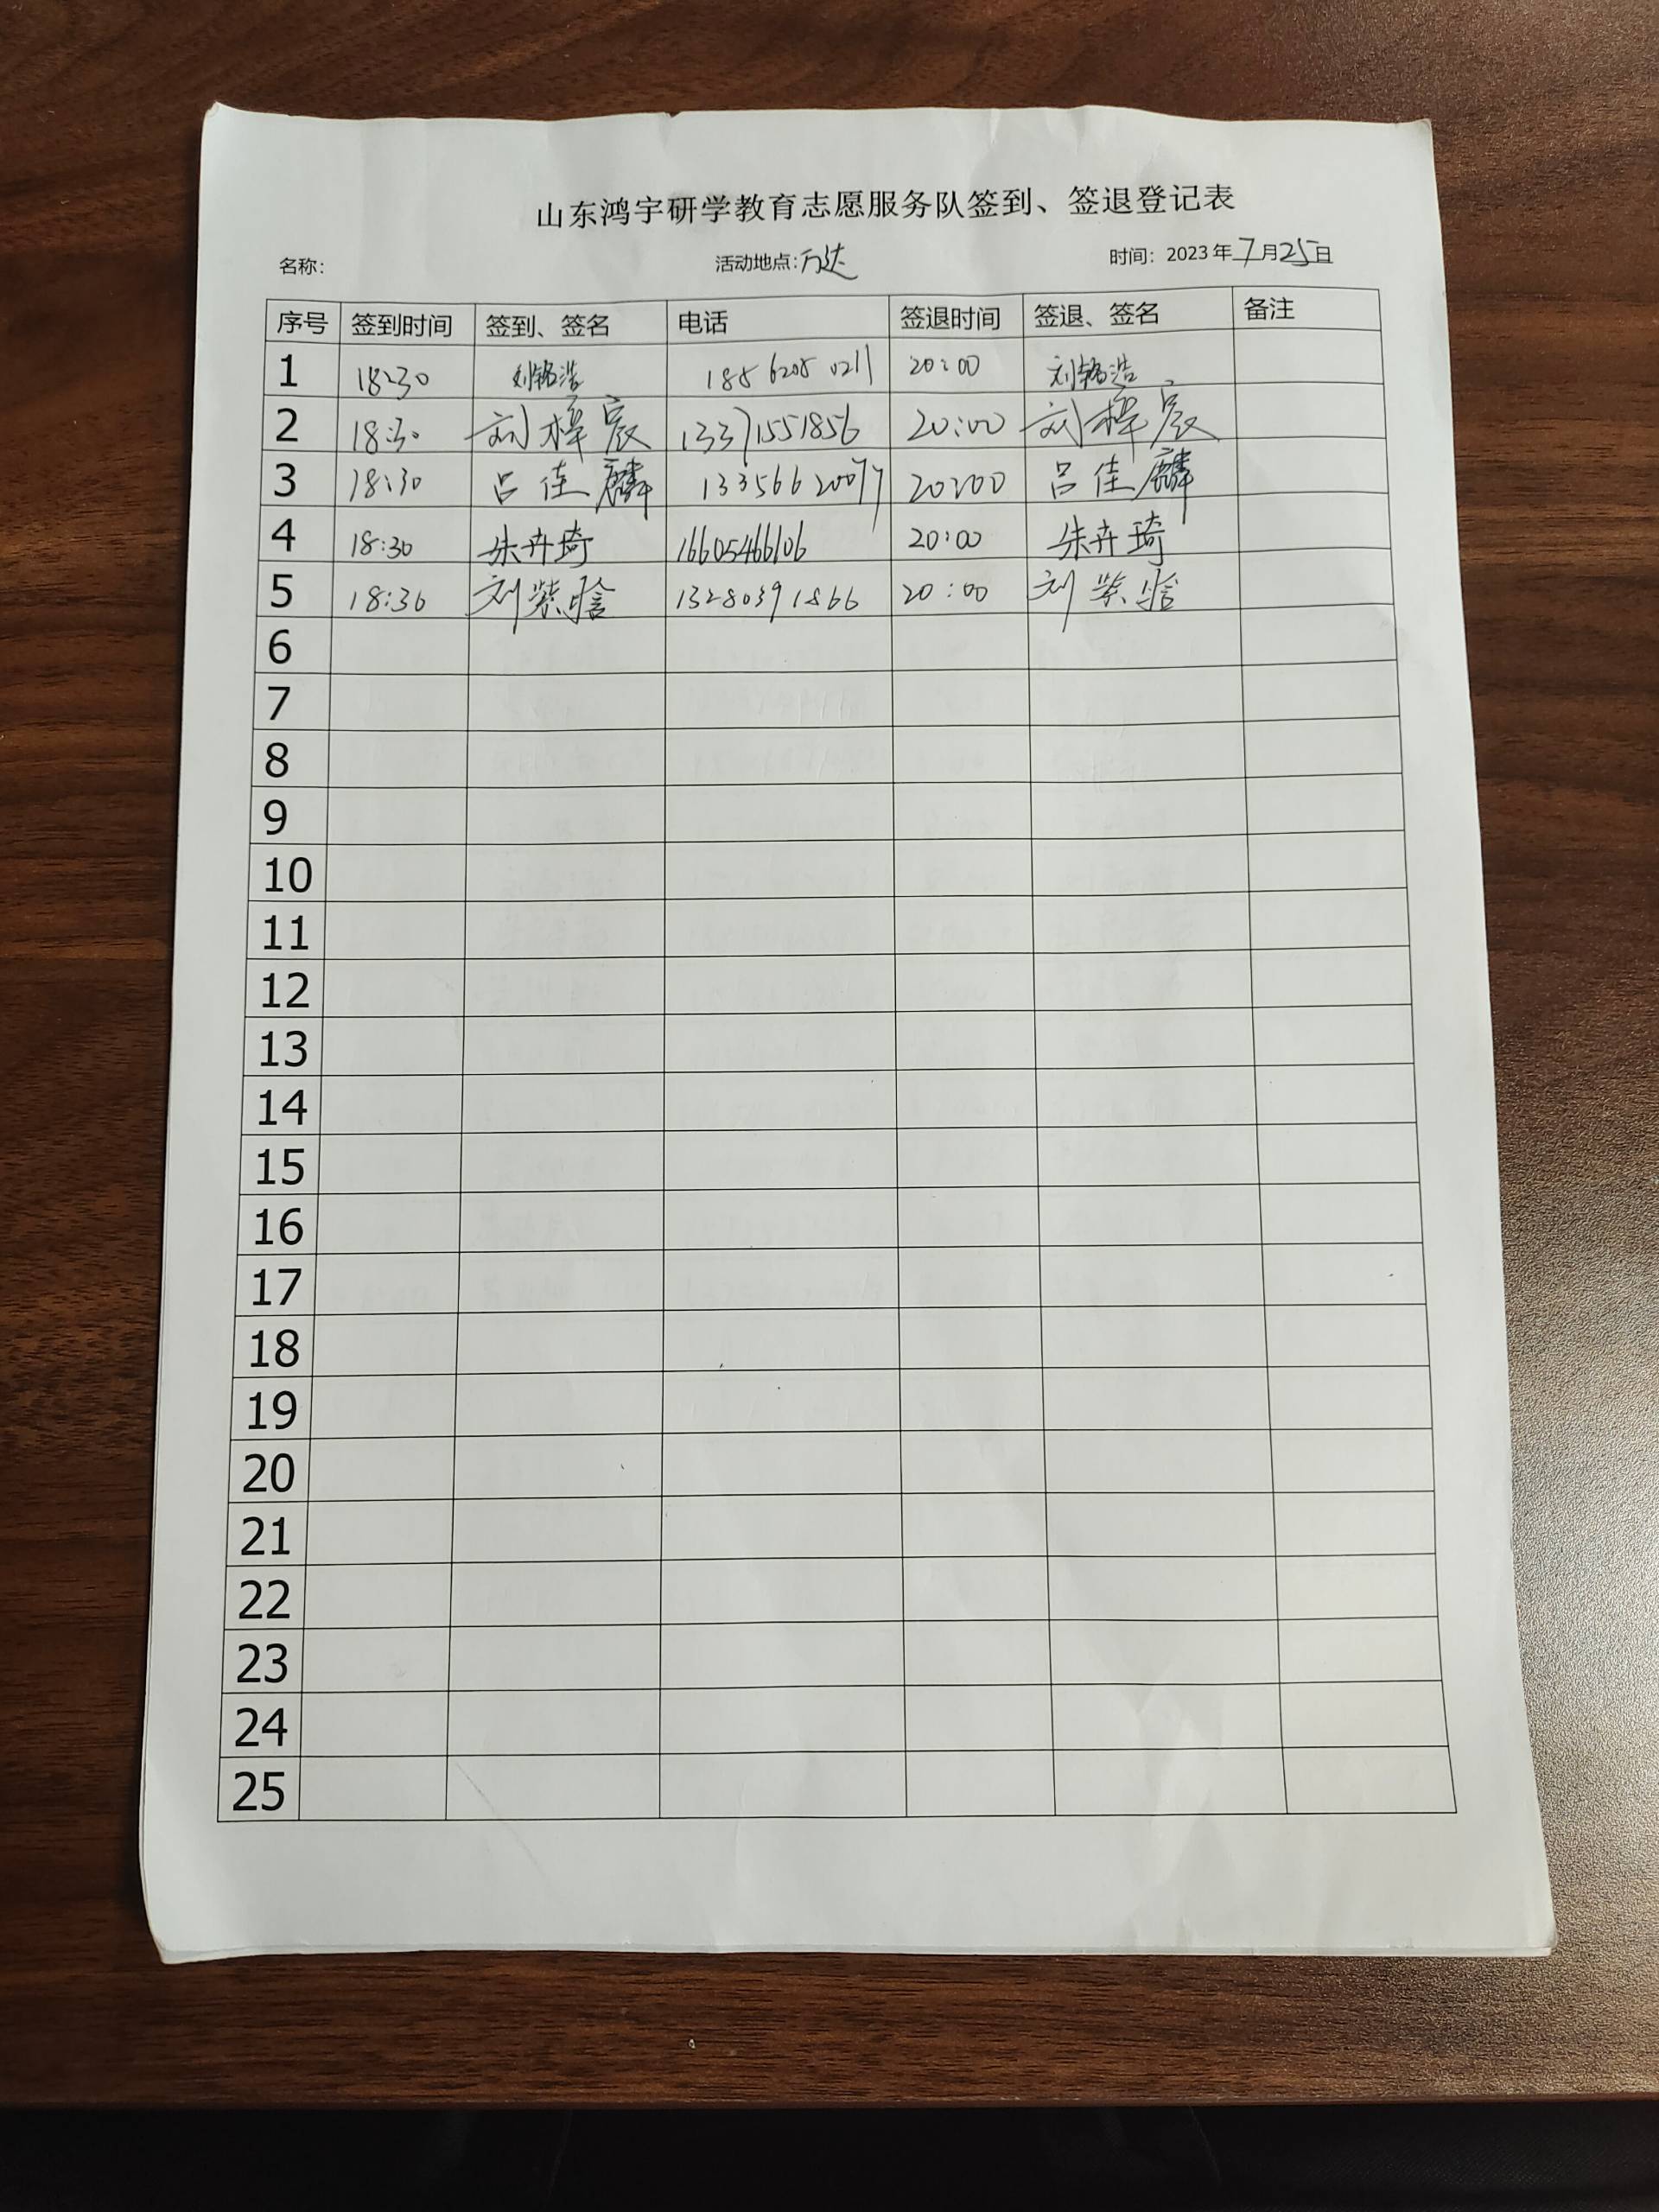 山东鸿宇研学教育志愿服务队签到、签退登记表
名称： 活动地点:万达 时间：2023年7月25日
序号 签到时间 签到、签名 电话 签退时间 签退、签名 备注
1 18:30 刘铭浩 185 6205 0211 20:00 刘铭浩
2 18:30 刘梓宸 13371551856 20:00 刘梓宸
3 18:30 吕佳麟 13356620077 20:00 吕佳麟
4 18:30 朱卉琦 16605466106 20:00 朱卉琦
5 18:30 刘紫晗 13280391866 20:00 刘紫晗
6
7
8
9
10
11
12
13
14
15
16
17
18
19
20
21
22
23
24
25